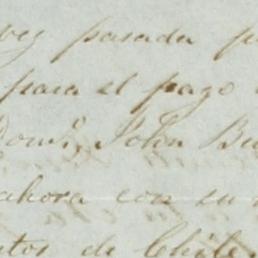 vez pasada p
para el pago
Dom.º John Bu
ahora con su
tos de Chile.